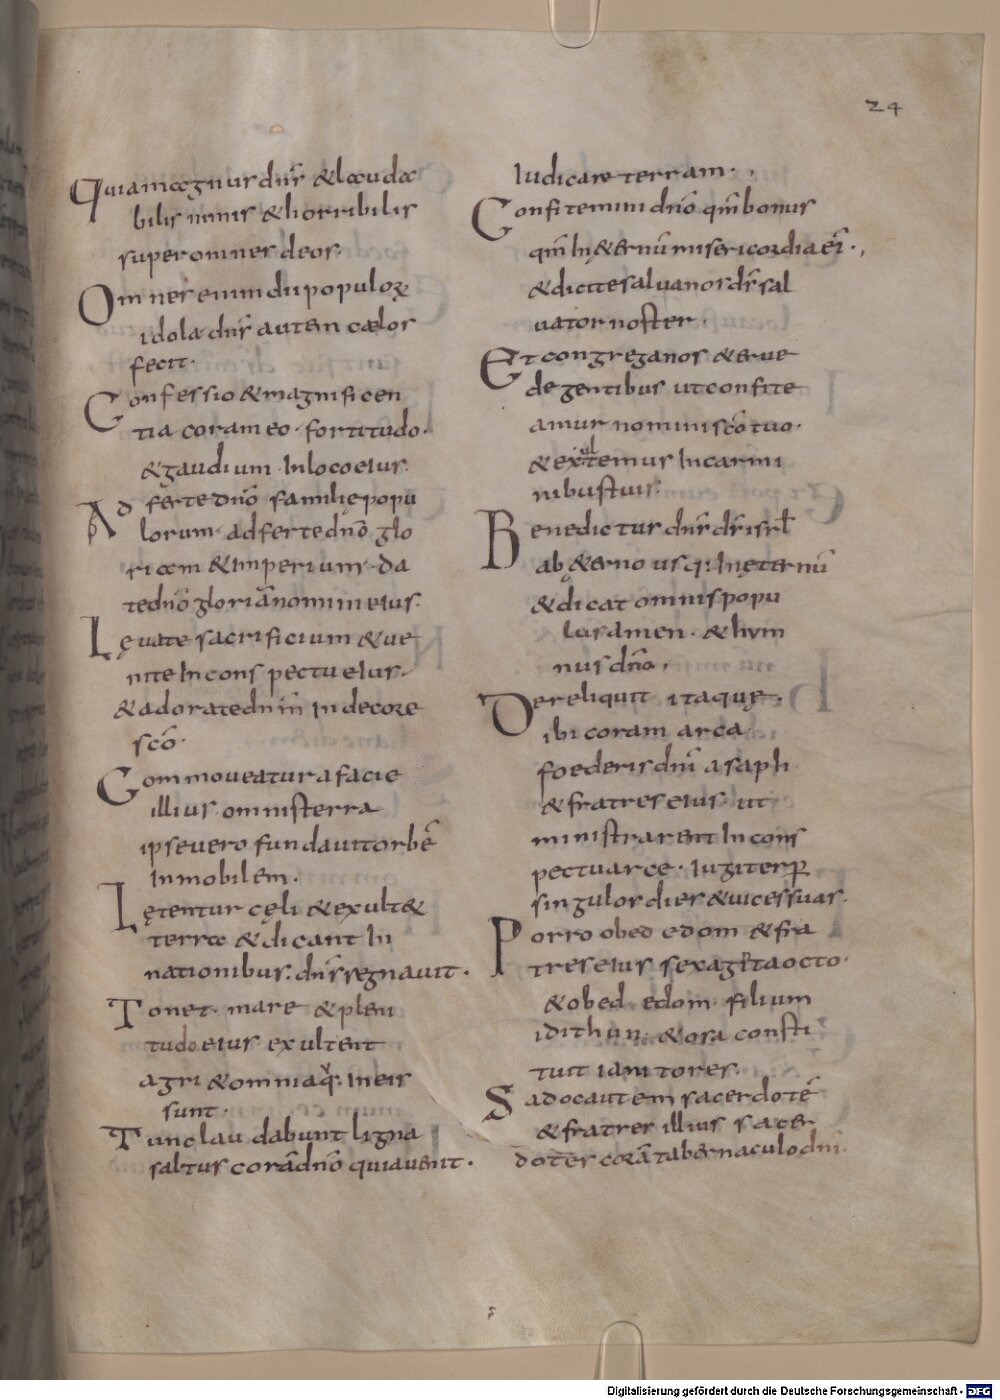 24
Quia magnus dn̄s & lauda
bilis nimis & horribilis
super omnes deos.
Omnes enim dii populoꝝ
idola dn̄s autem cælos
fecit.
Confessio & magnificen
tia coram eo. fortitudo.
& gaudium In loco eius.
Ad ferte dn̄o familię popu
lorum. ad ferte dn̄o glo
riam & Imperium. da
te dn̄o gloriā nomini eius.
Lęuate sacrificium & ue
nite In conspectu eius.
& adorate dn̄m In decore
sc̄o.
Commoueatur a facie
illius. omnis terra
ipse uero fundauit orbē
Inmobilem.
Lętentur cęli & exult&
terra & dicant In
nationibus. dn̄s regnauit.
Tonet. mare & pleni
tudo eius. exultent
agri & omnia q̄. In eis
sunt.
Tunc laudabunt ligna
saltus corā dn̄o quia uenit.
Iudicare terram.
Confitemini dn̄o qm̄ bonus
qm̄ In &ernū misericordia eī.
& dicite salua nos ds̄ sal
uator noster.
Et congrega nos & erue
de gentibus ut confite
amur nomini sc̄o tuo.
& exultemus In carmi
nibus tuis.
Benedictur dn̄s ds̄ isrł
ab &erno usq; In ęternū
& dicat omnis popu
lus amen. & hym
nus dn̄o.
Dereliquit itaquę.
ibi coram arca
foederis dn̄i asaph
& fratres eius. ut
ministrarent In cons
pectu arce. Iugiter ꝑ
singulos dies & uices suas.
Porro obed edom & fra
tres eius sexaginta octo.
& obed. edom. filium
idithun. & osa consti
tuit ianitores.
Sadoc autem sacerdotē
& fratres illius sacer
dotes corā tabernaculo dn̄i.
Digitalisierung gefördert durch die Deutsche Forschungsgemeinschaft - DFG